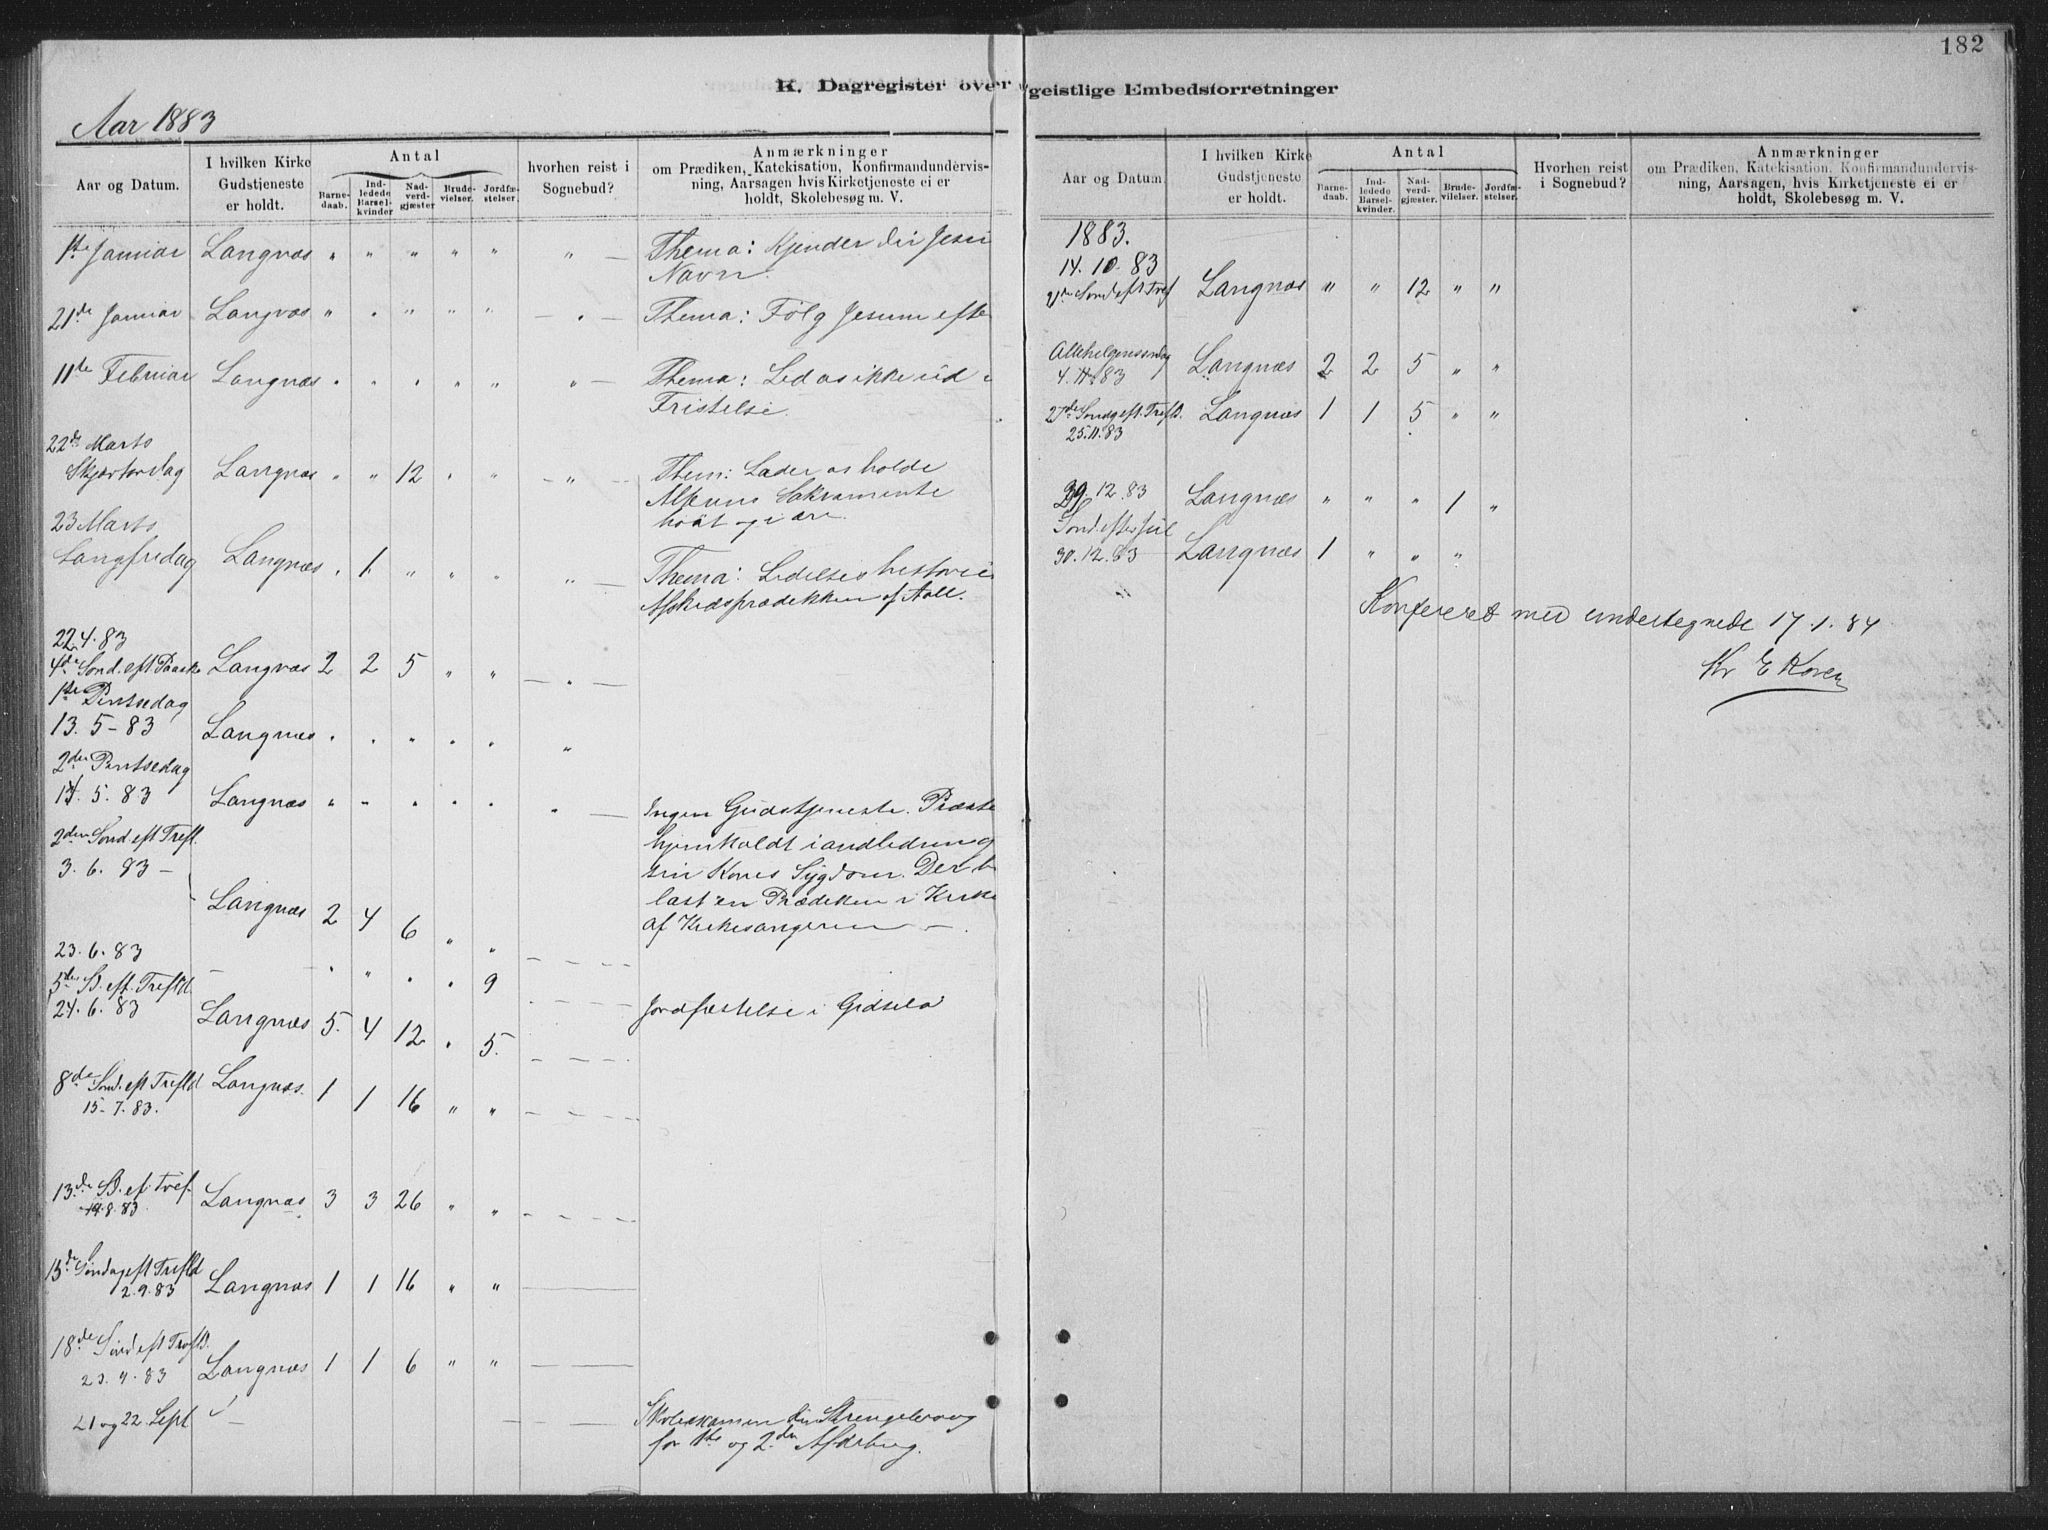 182
K. Dagregister over geistlige Embedsforretninger
Aar 1883
Aar og Datum.
I hvilken Kirke Gudstjeneste er holdt.
Antal
Barnedaab.
Indledede Barselkvinder
Nadverdgjæster
Brudevielser.
Jordfæstelser.
hvorhen reist i Sognebud?
Anmærkninger
om Prædiken, Katekisation, Konfirmandundervisning, Aarsagen hvis Kirketjeneste ei er holdt, Skolebesøg m. V.
1ste Januar Langnæs " " " " " " — Thema: Kjender du Jesu
Navn.
21de Januar Langnæs " " " " " — " — Thema: Følg Jesum efte
11te Februar Langnæs " " " " " " — Thema: Led os ikke ud i
Fristelse.
22de Marts
Skjærtorsdag Langnæs " " 12 " " — " — Them: Lader os holde
Alterens Sakramente
høit og i ære.
23 Marts
Langfredag Langnæs " 1 " " " " — Thema: Lidelseshistorie
Afskedsprædikken af Aall.
22.4.83
4de Sond. eft Paaske Langnæs 2 2 5 " " — " —
1ste Pintsedag
13. 5 - 83 Langnæs " " " " " "
2den Pintsedag
14. 5. 83 Langnæs " " " " " " — Ingen Gudstjeneste. Præste
2den Sond. eft Trefl. hjemkaldt i andledning
3. 6. 83 — sin Kones Sygdom. Der b
Langnæs 2 4 6 " " læst en Prædiken i Kirke
af Kirkesangeren —.
23. 6. 83 — " " " " 9
5de S. eft. Trefld.
24. 6. 83 Langnæs 5. 4 12 " 5. Jordfæstelse i Gidselø
8de Sond. eft Trefld Langnæs. 1 1 16 " "
15-7. 83.
13de S. ef. Tref. Langnæs 3 3 26 " "
19.8.83
15de Søndag eft Trefld Langnæs 1 1 16 " " —
2.9.83
18de Sønd eft Trefld. Langnæs 1 1 6 " " —
23.9.83
21 og 22. Sept — — Skoleexamen
for 1ste og 2den Afdeling.
Aar og Datum.
I hvilken Kirke Gudstjeneste er holdt.
Antal
Barnedaab.
Indledede Barselkvinder.
Nadverdgjæster.
Brudevielser.
Jordfæstelser.
Hvorhen reist i Sognebud?
Anmærkninger
om Prædiken, Katekisation, Konfirmandundervisning, Aarsagen, hvis Kirketjeneste ei er holdt, Skolebesøg m. V.
1883.
14. 10. 83
21de Sond eft Tref Langnæs " " 12 " "
Allehelgensøndag
4. 11. 83 Langnæs 2 2 5 " "
27de Sondg eft. Trefld. Langnæs 1 1 5 " "
25.11.83
29. 12. 83 Langnæs " " " 1 "
Sond. efter Jul
30. 12. 83 Langnæs 1 " " "
Konfereret med undertegnede 17. 1. 84
Kr E Koren